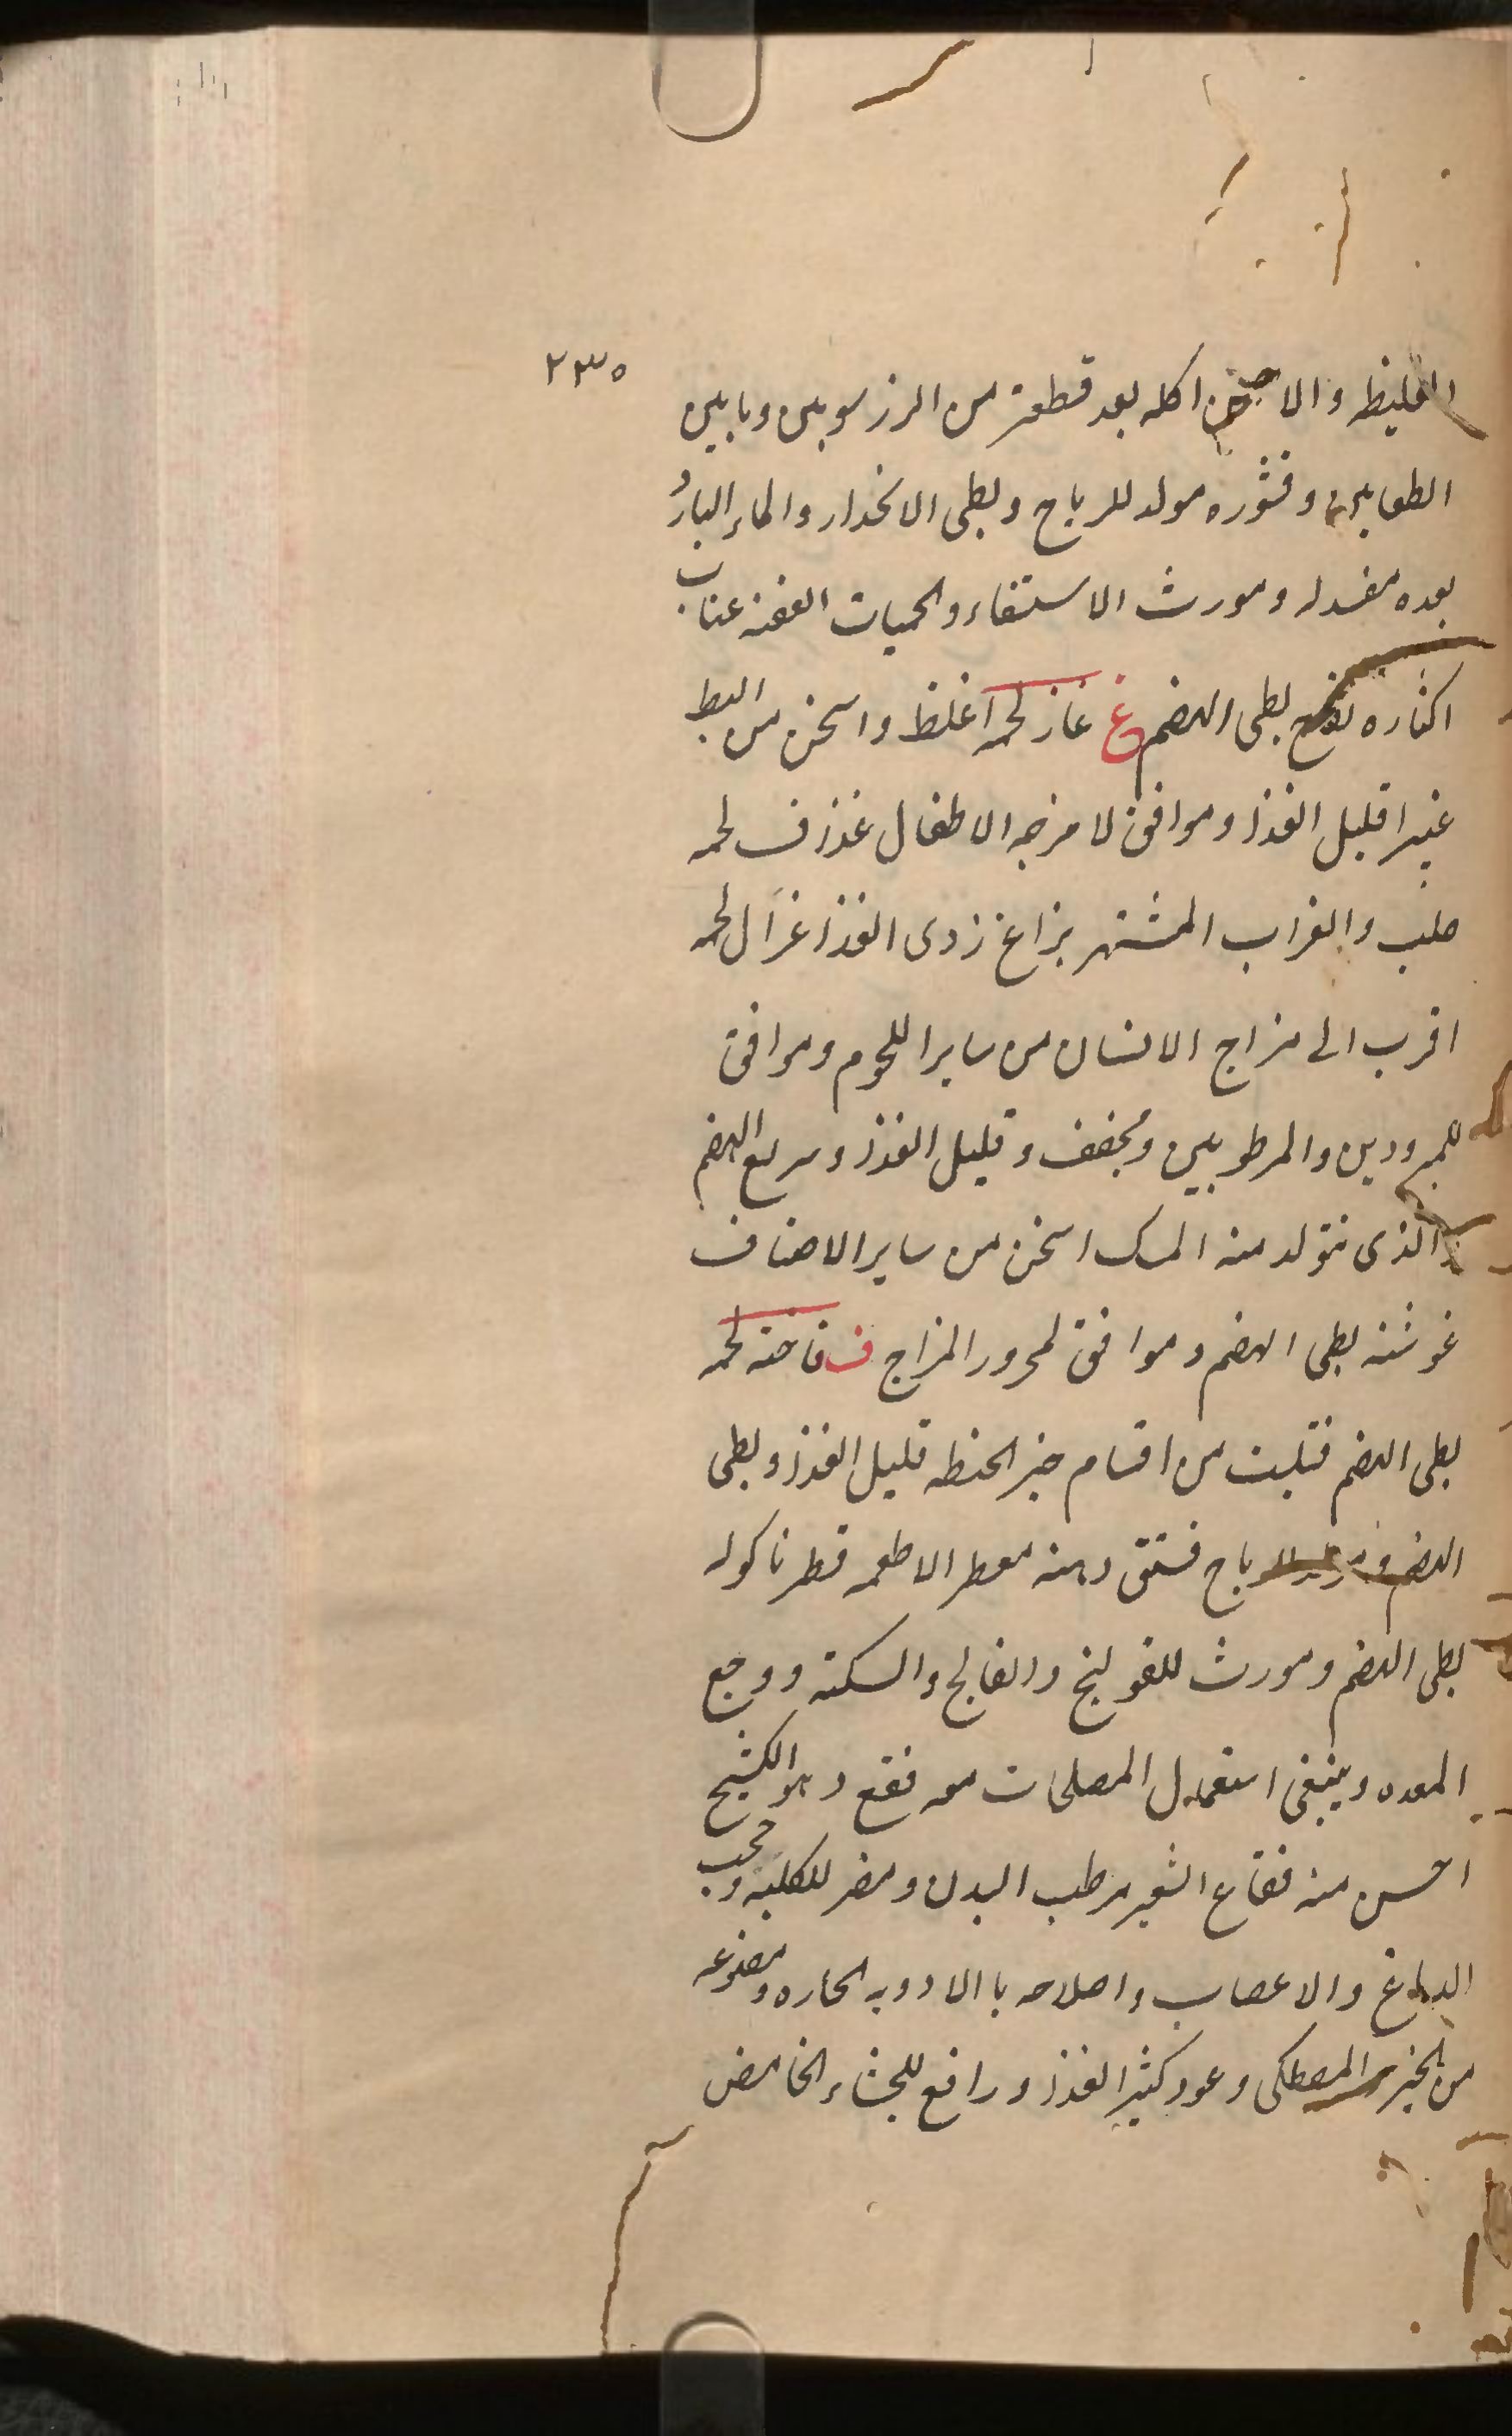 ٢٣٥
الغليظه والا اكله بعد قطعة من الرز سوبين وبابين
الطعامين وقشوره مولد للرياح وبطى الانحدار والماء البارد
بعده مفسد له ومورث الاستسقاء والحميات العفنه عناب
اكثاره بطى الهضم غ غاز لحمه اغلظ واسخن من البط
غبيرا قليل الغذا وموافق لامزجه الاطفال غذاف لحمه
صلب والغراب المشتهر بزاغ ردى الغذا غزال لحمه
اقرب الى مزاج الانسان من ساير اللحوم وموافق
للمبرودين والمرطوبين ومجفف وقليل الغذا وسريع الهضم
الذى نتولد منه المسك اسخن من ساير الاصناف
غوشنه بطى الهضم وموافق لمحرور المزاج ف فاخته لحمه
بطى الهضم فتيت من اقسام خبز الحنطه قليل الغذا وبطى
الهضم ومولد للرياح فستق دهنه معطر الاطعمه فطر ماكوله
بطى الهضم ومورث للقولنج والفالج والسكته ووجع
المعده وينبغى استعمال المصلحات معه فقع وهو الكشيح
احسن منه فقاع الشعير مرطب البدن ومضر للكليه وحجب
الدماغ والاعصاب واصلاحه باالادويه الحاره ومصنوعه
من الخبز والمصطكى وعود كثير الغذا ورافع للجشاء الحامض